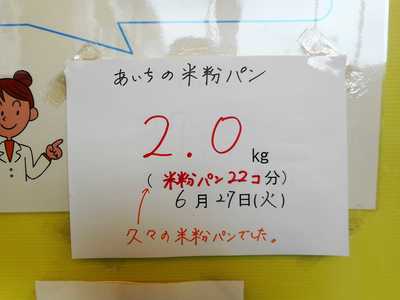 あいちの米粉パン
2.0 kg
(米粉パン22コ分)
6月27日(火)
久々の米粉パンでした。